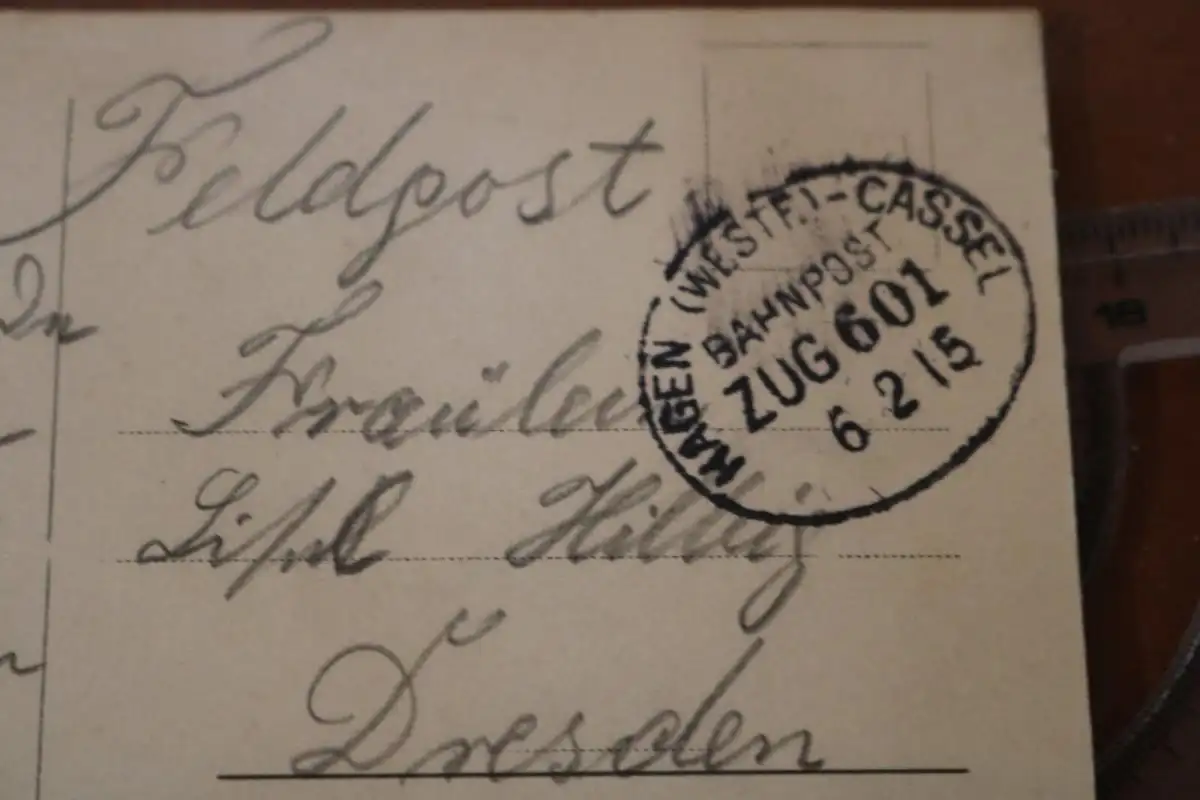 Feldpost
HAGEN (WESTF.)-CASSEL
BAHNPOST
ZUG 601
6 2 15
Fräulein
Lisel Hillig
Dresden